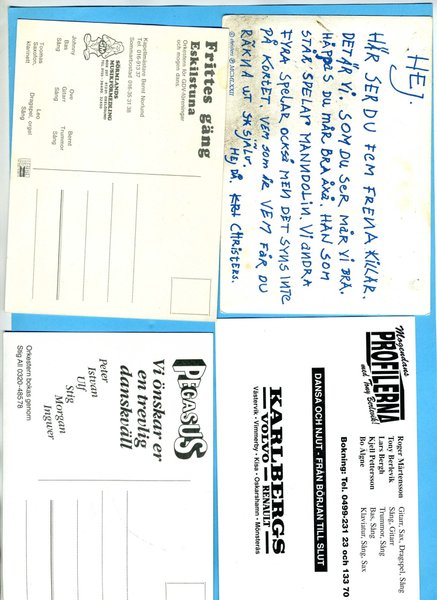 Frittes gäng
Eskilstuna
Orkestern för GDV-föreningar
och mogen dans.
Kapellmästare Bernt Norlund
Tel. 016-913 37
Sommarbostad 016-35 31 38
SÖRMLANDS
MUSIKERFÖRENING
Johnny
Bas
Sång
Ove
Gitarr
Sång
Bernt
Trummor
Sång
Tomas
Klarinett
Leo
Dragspel, orgel
Sång
HEJ.
HÄR SER DU FEM FRENA KILLAR.
DET ÄR VI. SOM DU SER MÅR VI BRA.
HÅPPAS DU MÅR BRA ÅXÅ. HAN SOM
STÅR SPELAR MANNDOLIN. VI ANDRA
FYRA SPELAR OCKSÅ MEN DET SYNS INTE
PÅ KORTET. VEM SOM ÄR VEM FÅR DU
RÄKNA UT SKSJÄLV.
HEJ DÅ. CHRISTERS.
PEGASUS
Vi önskar er
en trevlig
danskväll
Peter
Istvan
Ulf
Stig
Morgan
Ingwer
Orkestern bokas genom
Stig All 0320-48578
Mogendans
PROFILERNA
med Tony Berlevik!
Roger Mårtensson Gitarr, Sax, Dragspel, Sång
Tony Berlevik Sång, Gitarr
Lars Bergh Trummor, Sång
Kjell Pettersson Bas, Sång
Bo Algne Klaviatur, Sång, Sax
Bokning: Tel. 0499-231 23 och 133 70
DANSA OCH NJUT - FRÅN BÖRJAN TILL SLUT
KARLBERGS
VOLVO - RENAULT
Västervik • Vimmerby • Kisa • Oskarshamn • Mönsterås